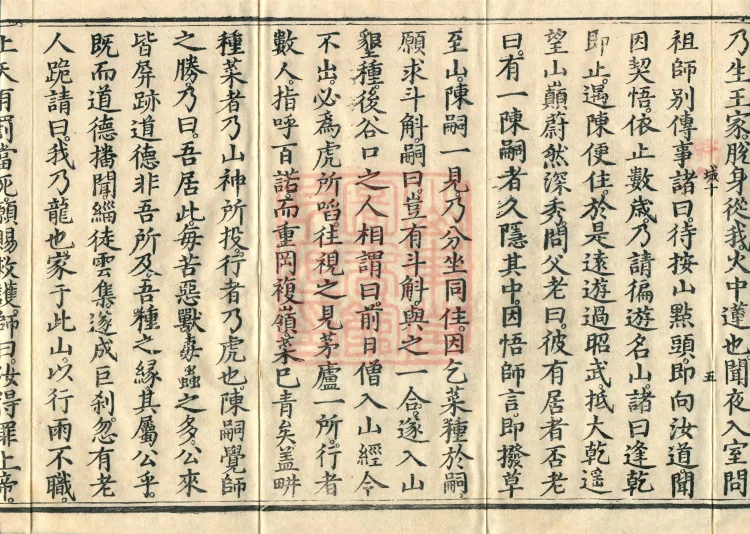 乃生王家脫身從我。火中蓮也聞夜入室問
祖師別傳事諸曰。待按山點頭。即向汝道。聞
因契悟。依止數歲乃請徧遊名山。諸曰逢乾
即止。遇陳便住。於是遠遊過昭武。抵大乾遙
望山巔蔚然深秀。問父老曰。彼有居者否。老
曰。有一陳嗣者久隱其中。因悟師言。即撥草
至山。陳嗣一見乃分坐同住。因乞菜種於嗣。
願求斗斛。嗣曰。豈有斗斛。與之一合。遂入山
墾種。後谷口之人相謂曰。前日僧入山經今
不出。必為虎所啗。往視之見茅廬一所。行者
數人。指呼百諾。而重岡複嶺菜已青矣。蓋畊
種菜者乃山神所投。行者乃虎也。陳嗣覺師
之勝。乃曰。吾居此。每苦惡獸毒蟲之多。公來
皆屏跡道德非吾所及。吾種之緣其屬公乎。
既而道德播聞。緇徒雲集。遂成巨刹。忽有老
人跪請曰。我乃龍也。家于此山。以行雨不職。
上天有罰當死。願賜救護。師曰。汝得罪上帝。
城十
五